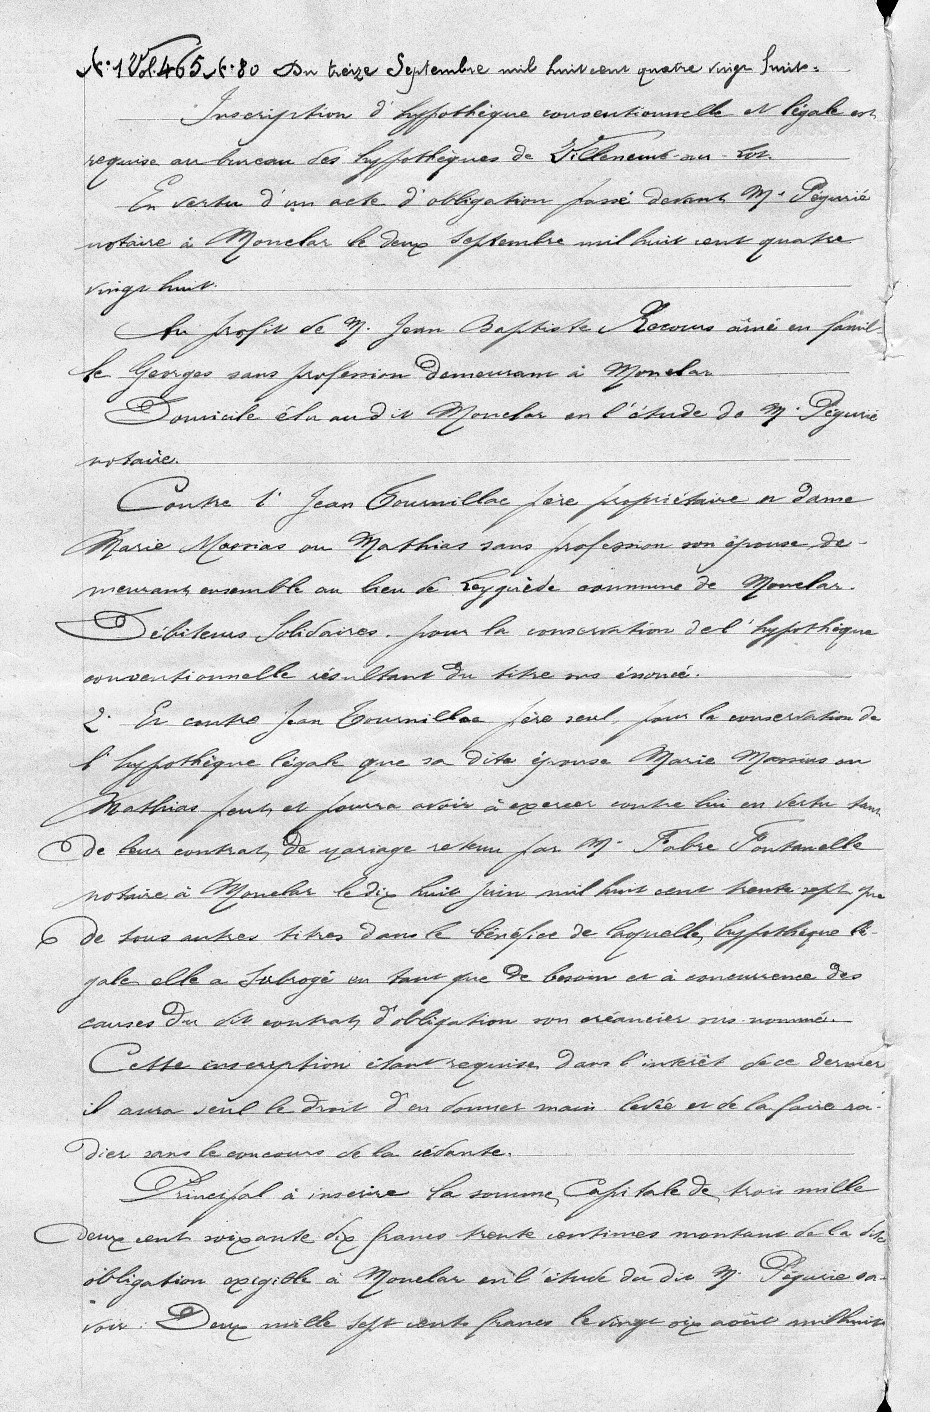 N° 1 Vol. 465 N° 80 Du treize Septembre mil huit cent quatre vingt huit.
Inscription d'hypothèque conventionnelle et légale est
requise au bureau des hypothèques de Villeneuve-sur-Lot.
En vertu d'un acte d'obligation passé devant Me Pégurié
notaire à Monclar le deux Septembre mil huit cent quatre
vingt huit.
Au profit de M. Jean Baptiste Recours aîné en famil-
le Georges sans profession demeurant à Monclar
Domicile élu audit Monclar en l'étude de Me Pégurié
notaire.
Contre 1° Jean Tournillac père propriétaire et dame
Marie Massias ou Mathias sans profession son épouse, de-
meurant ensemble au lieu de Leyguède commune de Monclar.
Débiteurs Solidaires. pour la conservation de l'hypothèque
conventionnelle résultant du titre sus énoncé.
2° Et contre Jean Tournillac père seul, pour la conservation de
l'hypothèque légale que sa dite épouse Marie Massias ou
Mathias peut et pourra avoir à exercer contre lui en vertu tant
de leur contrat de mariage retenu par Me Fabre Fontanelle
notaire à Monclar le dix huit juin mil huit cent trente sept que
de tous autres titres dans le bénéfice de laquelle hypothèque lé-
gale elle a subrogé en tant que de besoin et à concurrence des
causes du dit contrat d'obligation son créancier sus-nommé.
Cette inscription étant requise dans l'intérêt de ce dernier
il aura seul le droit d'en donner main levée et de la faire ra-
dier sans le concours de la cédante.
Principal à inscrire la somme Capitale de trois mille
deux cent soixante dix francs trente centimes montant de la dite
obligation exigible à Monclar en l'étude du dit Me Pégurié sa-
voir : Deux mille sept cents francs le vingt six août mil huit